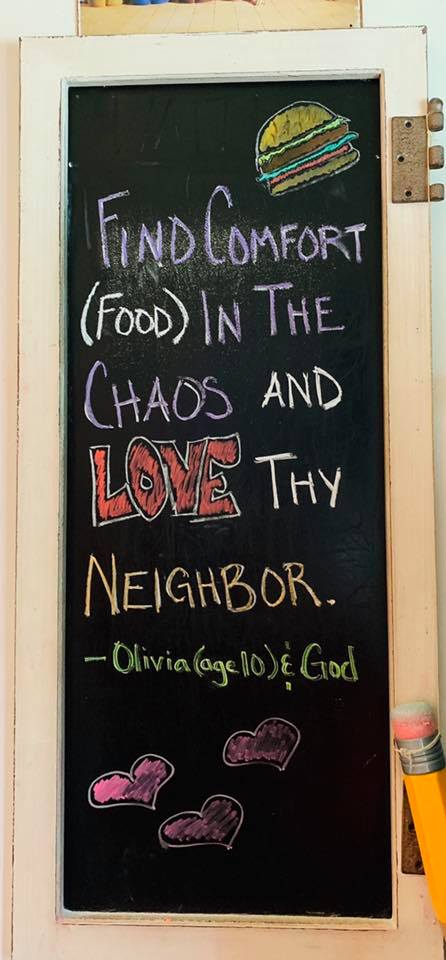 FIND COMFORT
(FOOD) IN THE
CHAOS AND
LOVE THY
NEIGHBOR.
- Olivia (age 10) & God